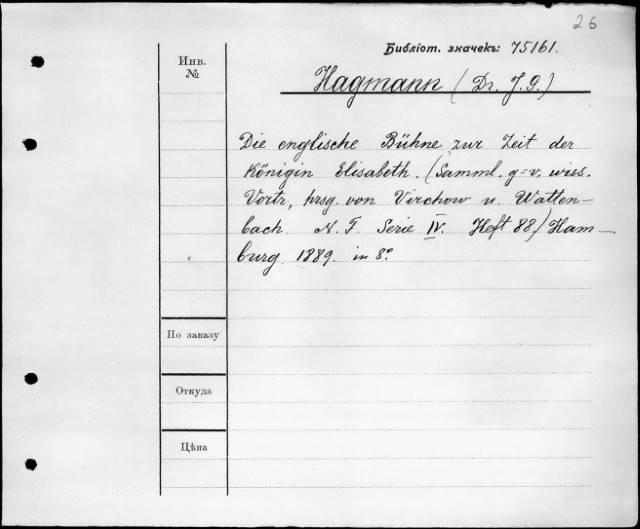 26
Библіот. значекъ: 75161.
Инв.
№
Hagmann (Dr. J. G.)
Die englische Bühne zur Zeit der
Königin Elisabeth. (Samml. g=v. wiss.
Vortr, hrsg. von Virchow u. Watten-
bach. N. F. Serie IV. Heft 88.) Ham-
burg. 1889. in 8°
По заказу
Откуда
Цѣна